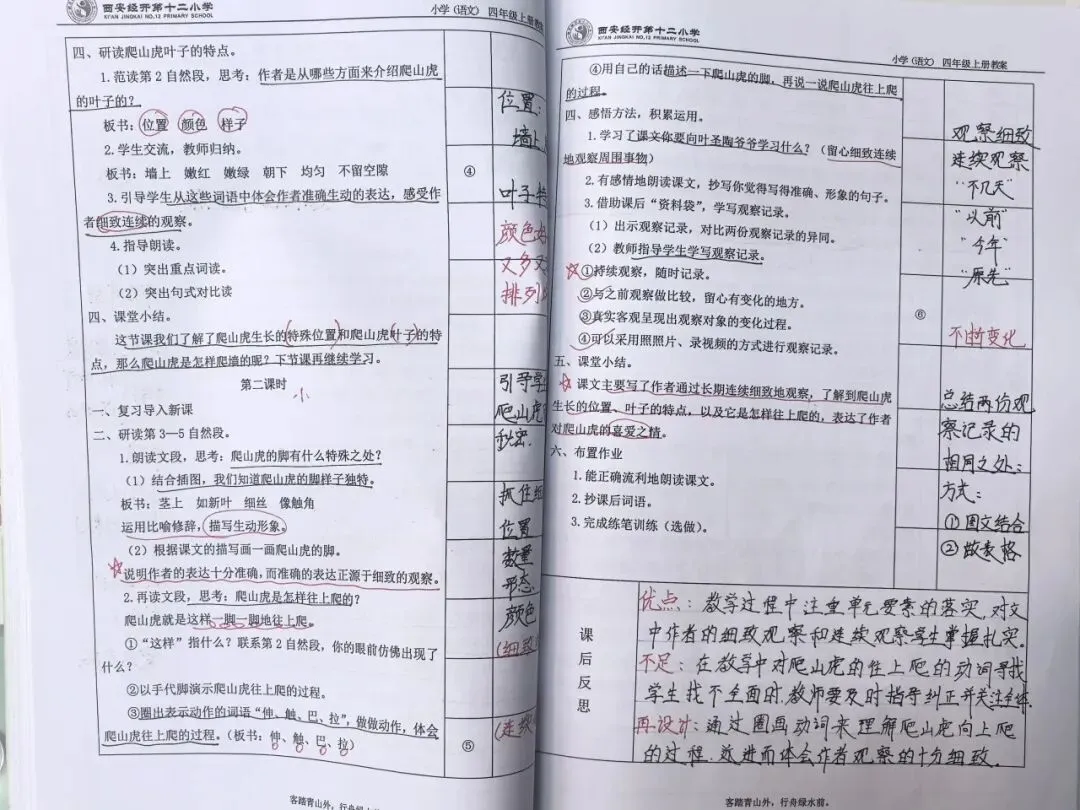 西安经开第十二小学
XI'AN JINGKAI NO.12 PRIMARY SCHOOL
小学(语文) 四年级上册教案
四、研读爬山虎叶子的特点。
1.范读第2自然段，思考：作者是从哪些方面来介绍爬山虎
的叶子的？
板书：位置 颜色 样子
2.学生交流，教师归纳。
板书：墙上 嫩红 嫩绿 朝下 均匀 不留空隙
3.引导学生从这些词语中体会作者准确生动的表达，感受作
者细致连续的观察。
4.指导朗读。
（1）突出重点词读。
（2）突出句式对比读
四、课堂小结。
这节课我们了解了爬山虎生长的特殊位置和爬山虎叶子的特
点，那么爬山虎是怎样爬墙的呢？下节课再继续学习。
第二课时
一、复习导入新课
二、研读第3—5自然段。
1.朗读文段，思考：爬山虎的脚有什么特殊之处？
（1）结合插图，我们知道爬山虎的脚样子独特。
板书：茎上 如新叶 细丝 像触角
运用比喻修辞，描写生动形象。
（2）根据课文的描写画一画爬山虎的脚。
说明作者的表达十分准确，而准确的表达正源于细致的观察。
2.再读文段，思考：爬山虎是怎样往上爬的？
爬山虎就是这样一脚一脚地往上爬。
①“这样”指什么？联系第2自然段，你的眼前仿佛出现了
什么？
②以手代脚演示爬山虎往上爬的过程。
③圈出表示动作的词语“伸、触、巴、拉”，做做动作，体会
爬山虎往上爬的过程。（板书：伸、触、巴、拉）
④
⑤
位置：
墙上
叶子
颜色
又多又
排列
引导学
爬山虎
秘密.
抓住
位置
数量
形态
颜色
(细致
(连续
客踏青山外，行舟绿
西安经开第十二小学
XI'AN JINGKAI NO.12 PRIMARY SCHOOL
小学(语文) 四年级上册教案
④用自己的话描述一下爬山虎的脚，再说一说爬山虎往上爬
的过程。
四、感悟方法，积累运用。
1.学习了课文你要向叶圣陶爷爷学习什么？（留心细致连续
地观察周围事物）
2.有感情地朗读课文，抄写你觉得写得准确、形象的句子。
3.借助课后“资料袋”，学写观察记录。
（1）出示观察记录，对比两份观察记录的异同。
（2）教师指导学生学写观察记录。
①持续观察，随时记录。
②与之前观察做比较，留心有变化的地方。
③真实客观呈现出观察对象的变化过程。
④可以采用照照片、录视频的方式进行观察记录。
五、课堂小结。
课文主要写了作者通过长期连续细致地观察，了解到爬山虎
生长的位置、叶子的特点，以及它是怎样往上爬的，表达了作者
对爬山虎的喜爱之情。
六、布置作业
1.能正确流利地朗读课文。
2.抄课后词语。
3.完成练笔训练（选做）。
⑥
观察细致
连续观察
“不几天”
“以前”
“今年”
“原先”
不断变化
总结两份观
察记录的
相同之处：
方式：
①图文结合
②做表格
课后反思
优点：教学过程中注重单元要素的落实，对文
中作者的细致观察和连续观察学生掌握扎实。
不足：在教学中对爬山虎的往上爬的动词寻找
学生找不全面时，教师要及时指导纠正并关注全体
再设计：通过圈画动词来理解爬山虎向上爬
的过程，进而体会作者观察的十分细致。
客踏青山外，行舟绿水前。